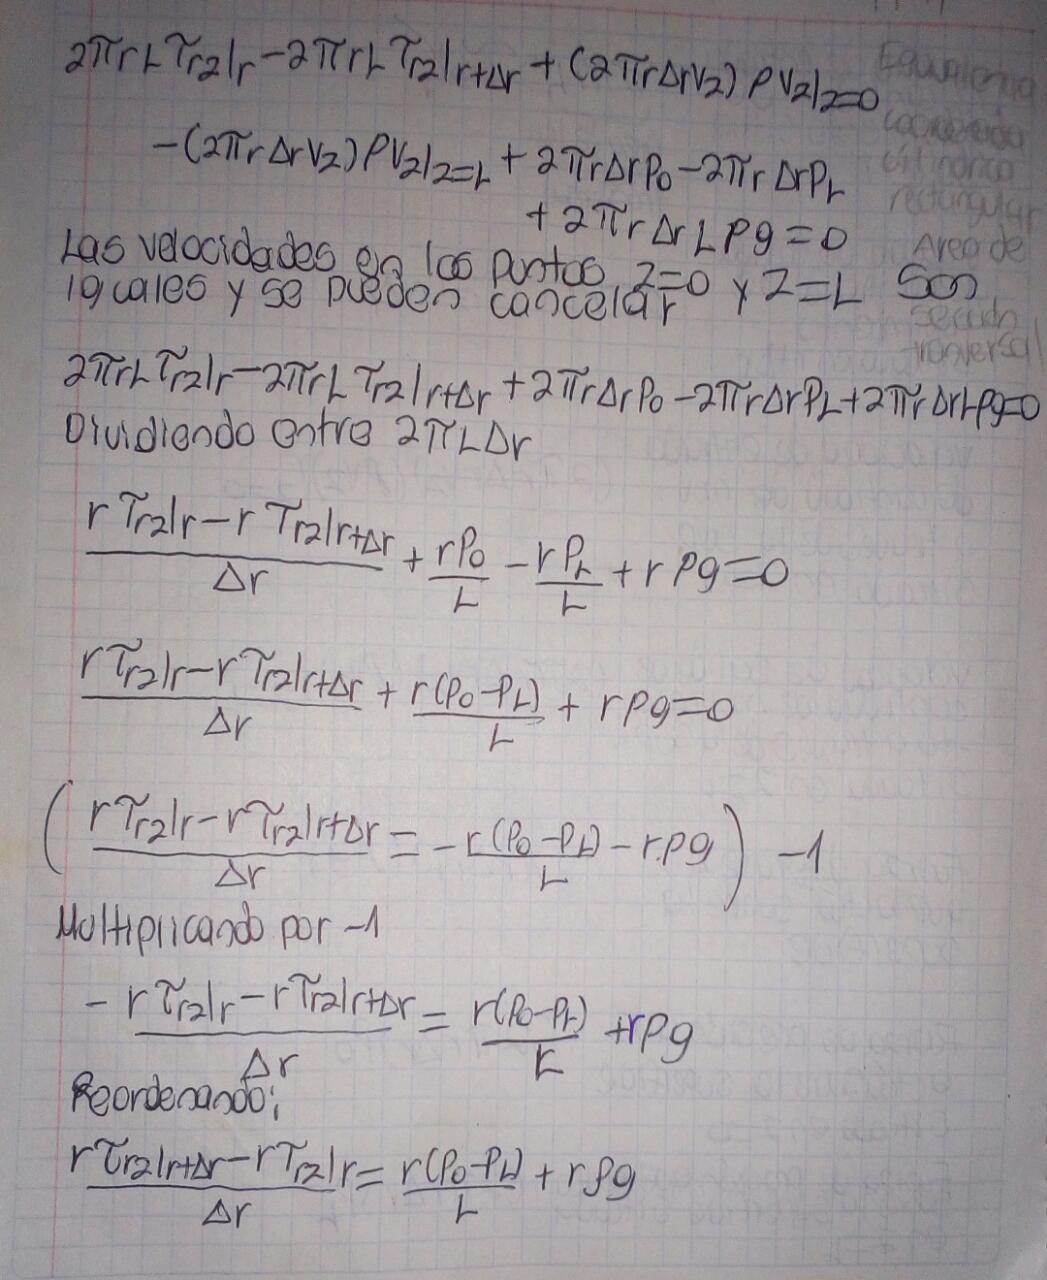 2πrL τrz|r − 2πrL τrz|r+Δr + (2πrΔrVz) ρVz|z=0
−(2πrΔrVz) ρVz|z=L + 2πrΔrP₀ − 2πrΔrPL
+ 2πrΔrLρg = 0
Las velocidades en los puntos z=0 y z=L Son
iguales y se pueden cancelar
2πrL τrz|r − 2πrL τrz|r+Δr + 2πrΔrP₀ − 2πrΔrPL + 2πrΔrLρg=0
Dividiendo entre 2πLΔr
(r τrz|r − r τrz|r+Δr)/Δr + rP₀/L − rPL/L + rρg=0
(r τrz|r − r τrz|r+Δr)/Δr + r(P₀−PL)/L + rρg=0
((r τrz|r − r τrz|r+Δr)/Δr = − r(P₀−PL)/L − r.ρg) −1
Multiplicando por −1
− (r τrz|r − r τrz|r+Δr)/Δr = r(P₀−PL)/L + rρg
Reordenando;
(r τrz|r+Δr − r τrz|r)/Δr = r(P₀−PL)/L + rρg
Equivalencia
coordenada
cilindrica
rectangular
Area de
sección
tranversal